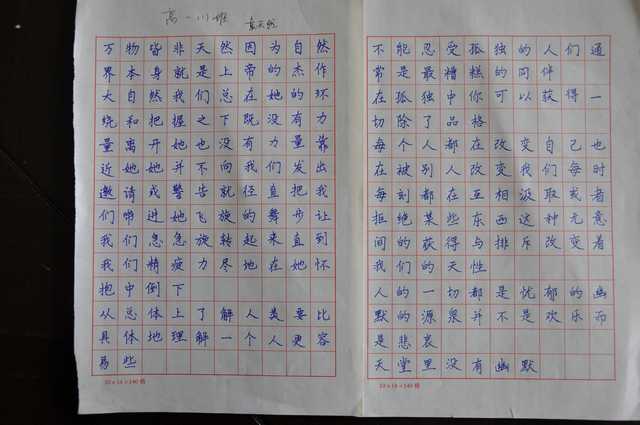 高一川班
万物皆非天然因为自然
界本身就是上帝的杰作
大自然我们总在她的环
绕和把握之下既没有力
量离开她也没有力量靠
近她她并不向我们发出
邀请或警告就径直把我
们带进她飞旋的舞步让
我们忽忽旋转起来直到
我们精疲力尽地在她怀
抱中倒下
从总体上了解人类要比
具体地理解一个人更容
易些
10×14=140格
不能忍受孤独的人们通
常是最糟糕的同伴
在孤独中你可以获得一
切除了品格
每个人都在改变自己也
在被别人改变我们每时
每刻都在互相汲取或者
拒绝某些东西这种无意
间的获得与排斥改变着
我们的天性
人的一切都是忧郁的幽
默的源泉并不是欢乐而
是悲哀
天堂里没有幽默
10×14=140格